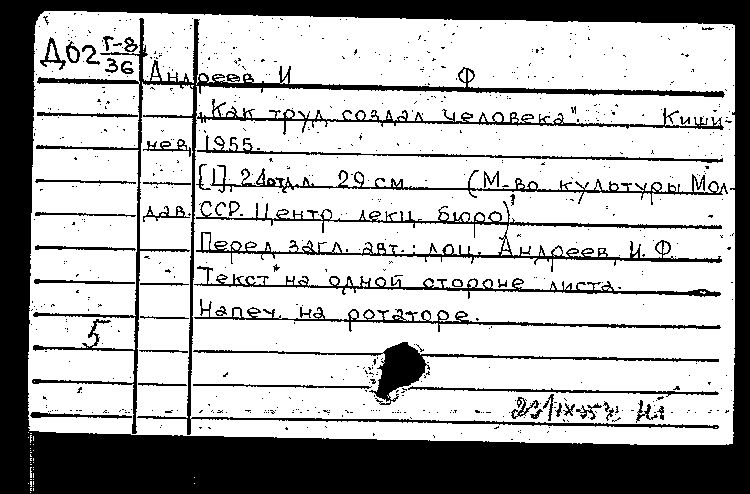 Д02 Г-8/36
Андреев, И Ф
"Как труд создал человека". Киши-
нев, 1955.
[1], 24 отд. л. 29 см (М-во культуры Мол-
дав. ССР. Центр. лекц. бюро).
Перед загл. авт.: доц. Андреев, И. Ф.
Текст на одной стороне листа.
Напеч. на ротаторе.
5